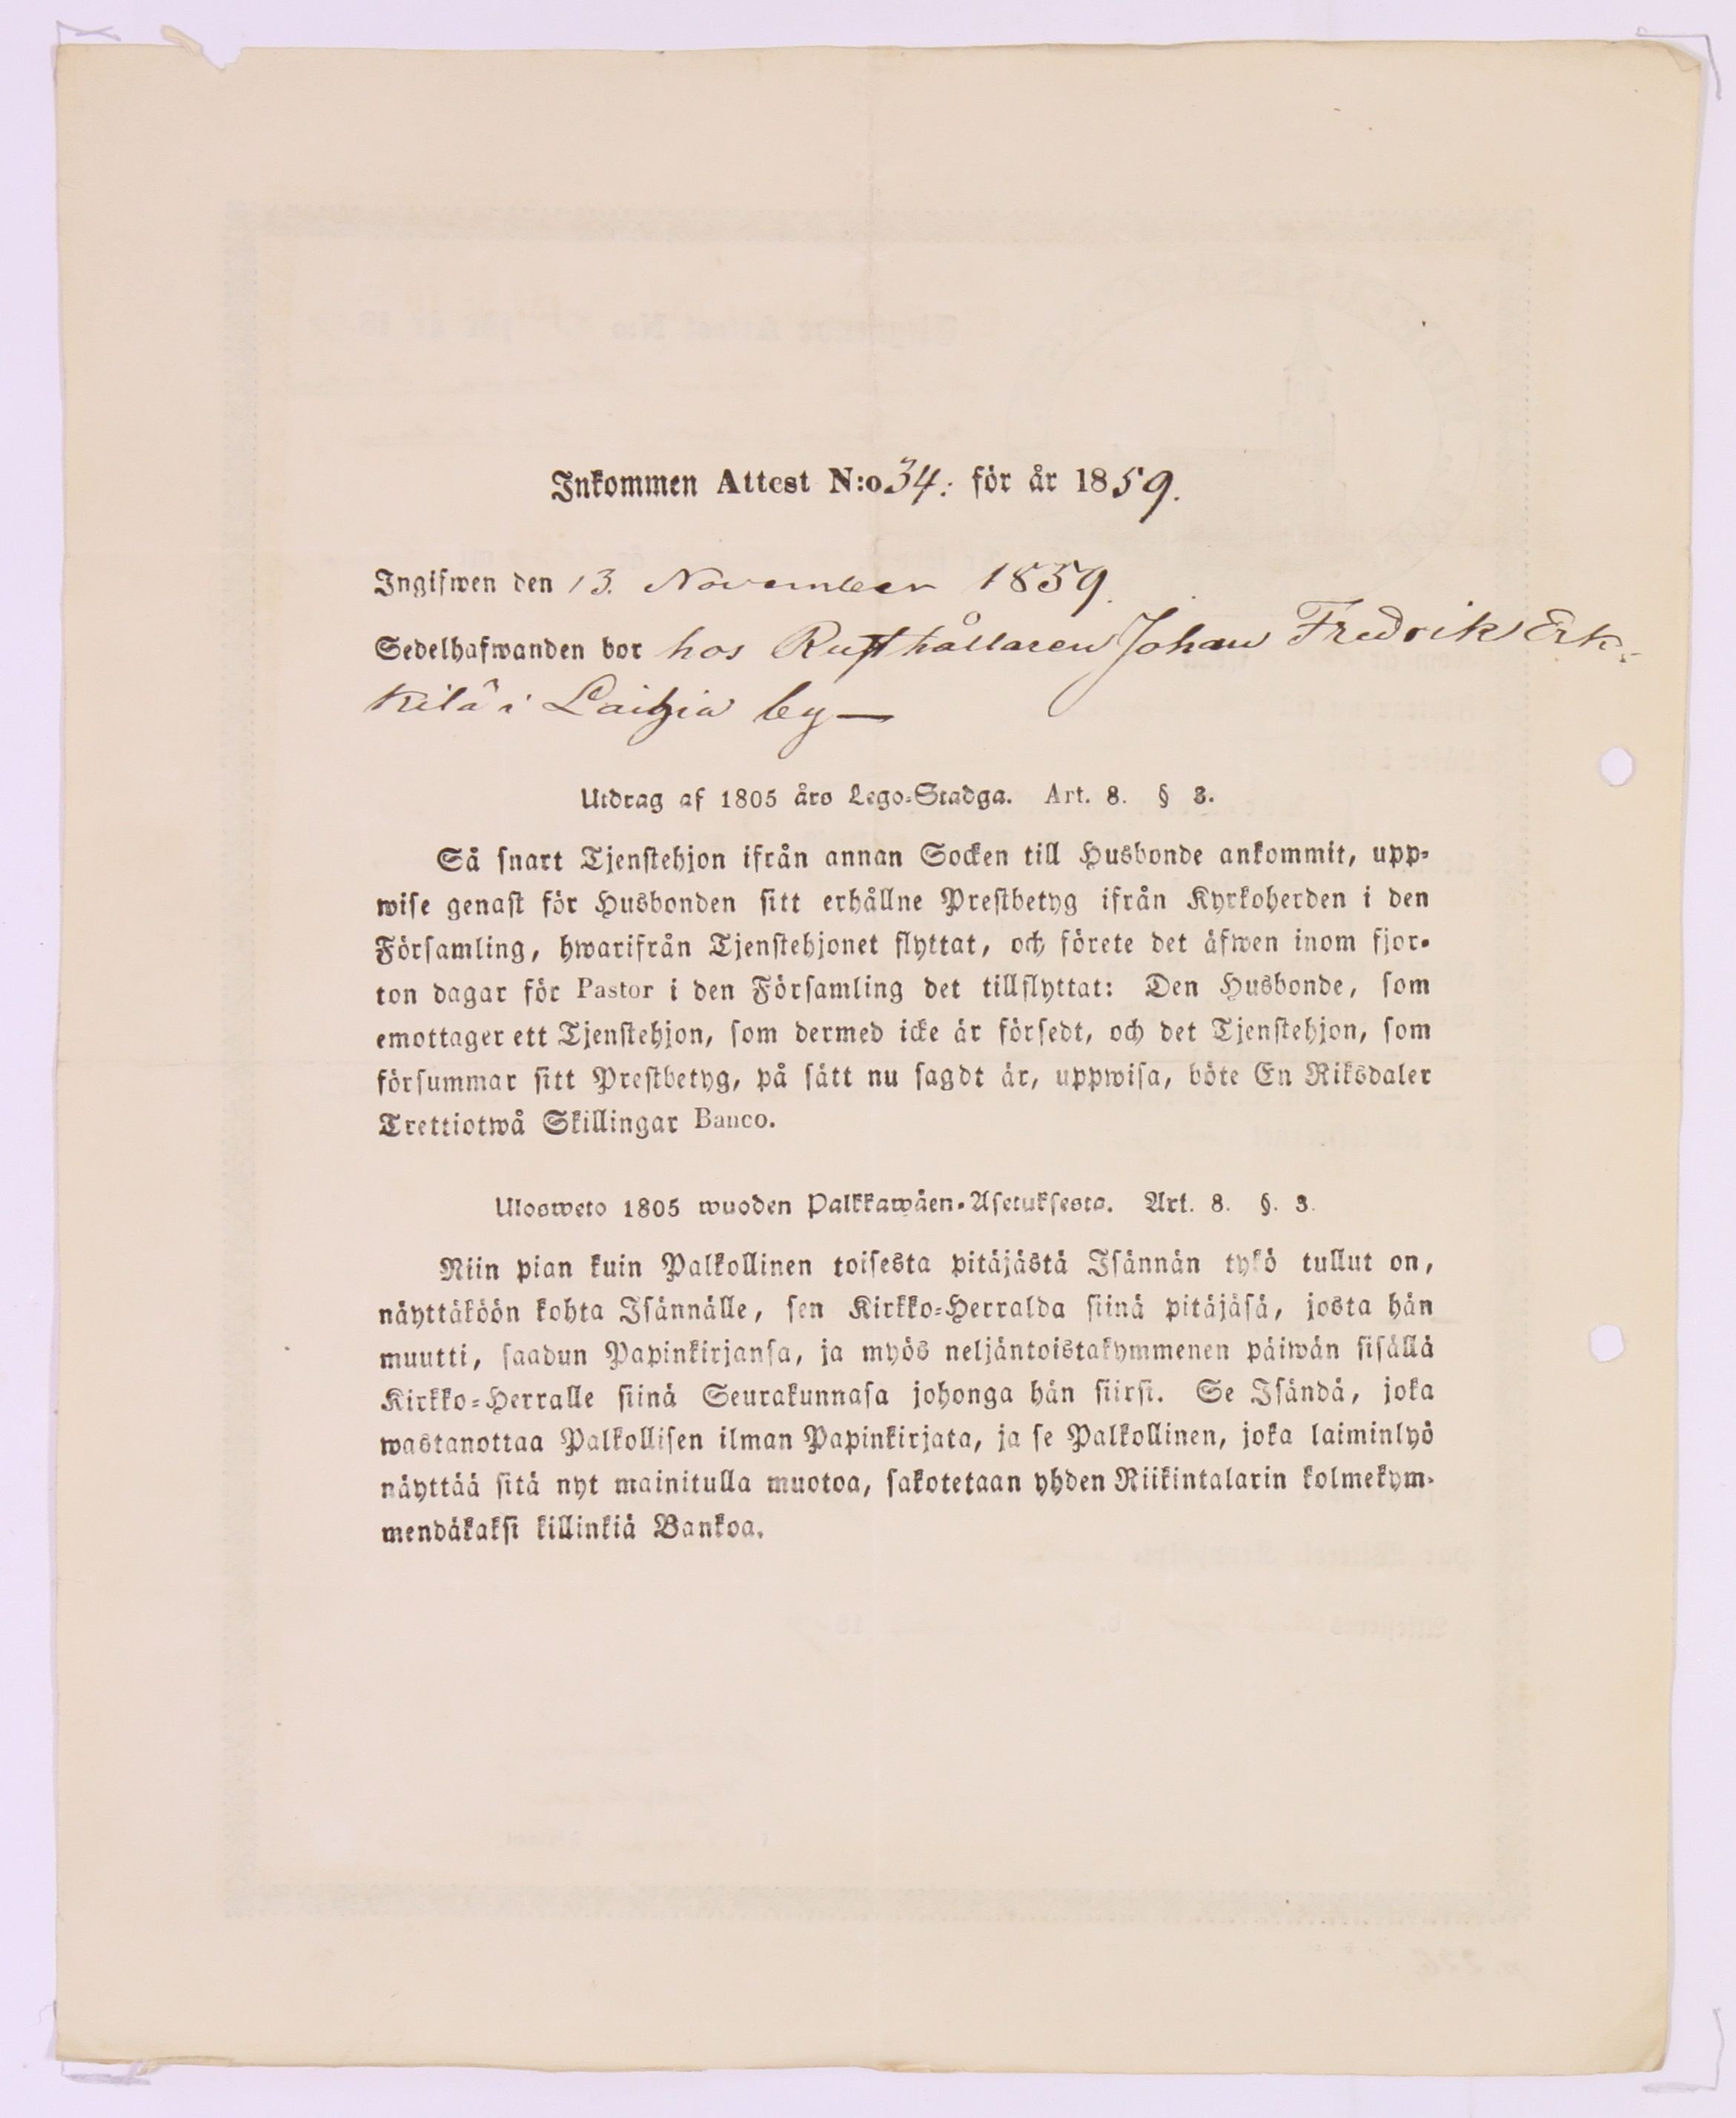 Inkommen Attest N:o 34: för år 1859.
Ingifwen den 13. November 1859.
Sedelhafwanden bor hos Rusthållaren Johan Fredrik Erk-
kilä i by —
Utdrag af 1805 års Lego-Stadga. Art. 8. § 3.
Så snart Tjenstehjon ifrån annan Socken till Husbonde ankommit, upp-
wise genast för Husbonden sitt erhållne Prestbetyg ifrån Kyrkoherden i den
Församling, hwarifrån Tjenstehjonet flyttat, och förete det äfwen inom fjor-
ton dagar för Pastor i den Församling det tillflyttat: Den Husbonde, som
emottager ett Tjenstehjon, som dermed icke är försedt, och det Tjenstehjon, som
försummar sitt Prestbetyg, på sätt nu sagdt är, uppwisa, böte En Riksdaler
Trettiotwå Skillingar Banco.
Ulosweto 1805 wuoden Palkkawäen-Asetuksesta. Art. 8. §. 3.
Niin pian kuin Palkollinen toisesta pitäjästä Isännän tykö tullut on,
näyttäköön kohta Isännälle, sen Kirkko-Herralda siinä pitäjäsä, josta hän
muutti, saadun Papinkirjansa, ja myös neljäntoistakymmenen päiwän sisällä
Kirkko-Herralle siinä Seurakunnasa johonga hän siirsi. Se Isändä, joka
wastanottaa Palkollisen ilman Papinkirjata, ja se Palkollinen, joka laiminlyö
näyttää sitä nyt mainitulla muotoa, sakotetaan yhden Riikintalarin kolmekym-
mendäkaksi killinkiä Bankoa.